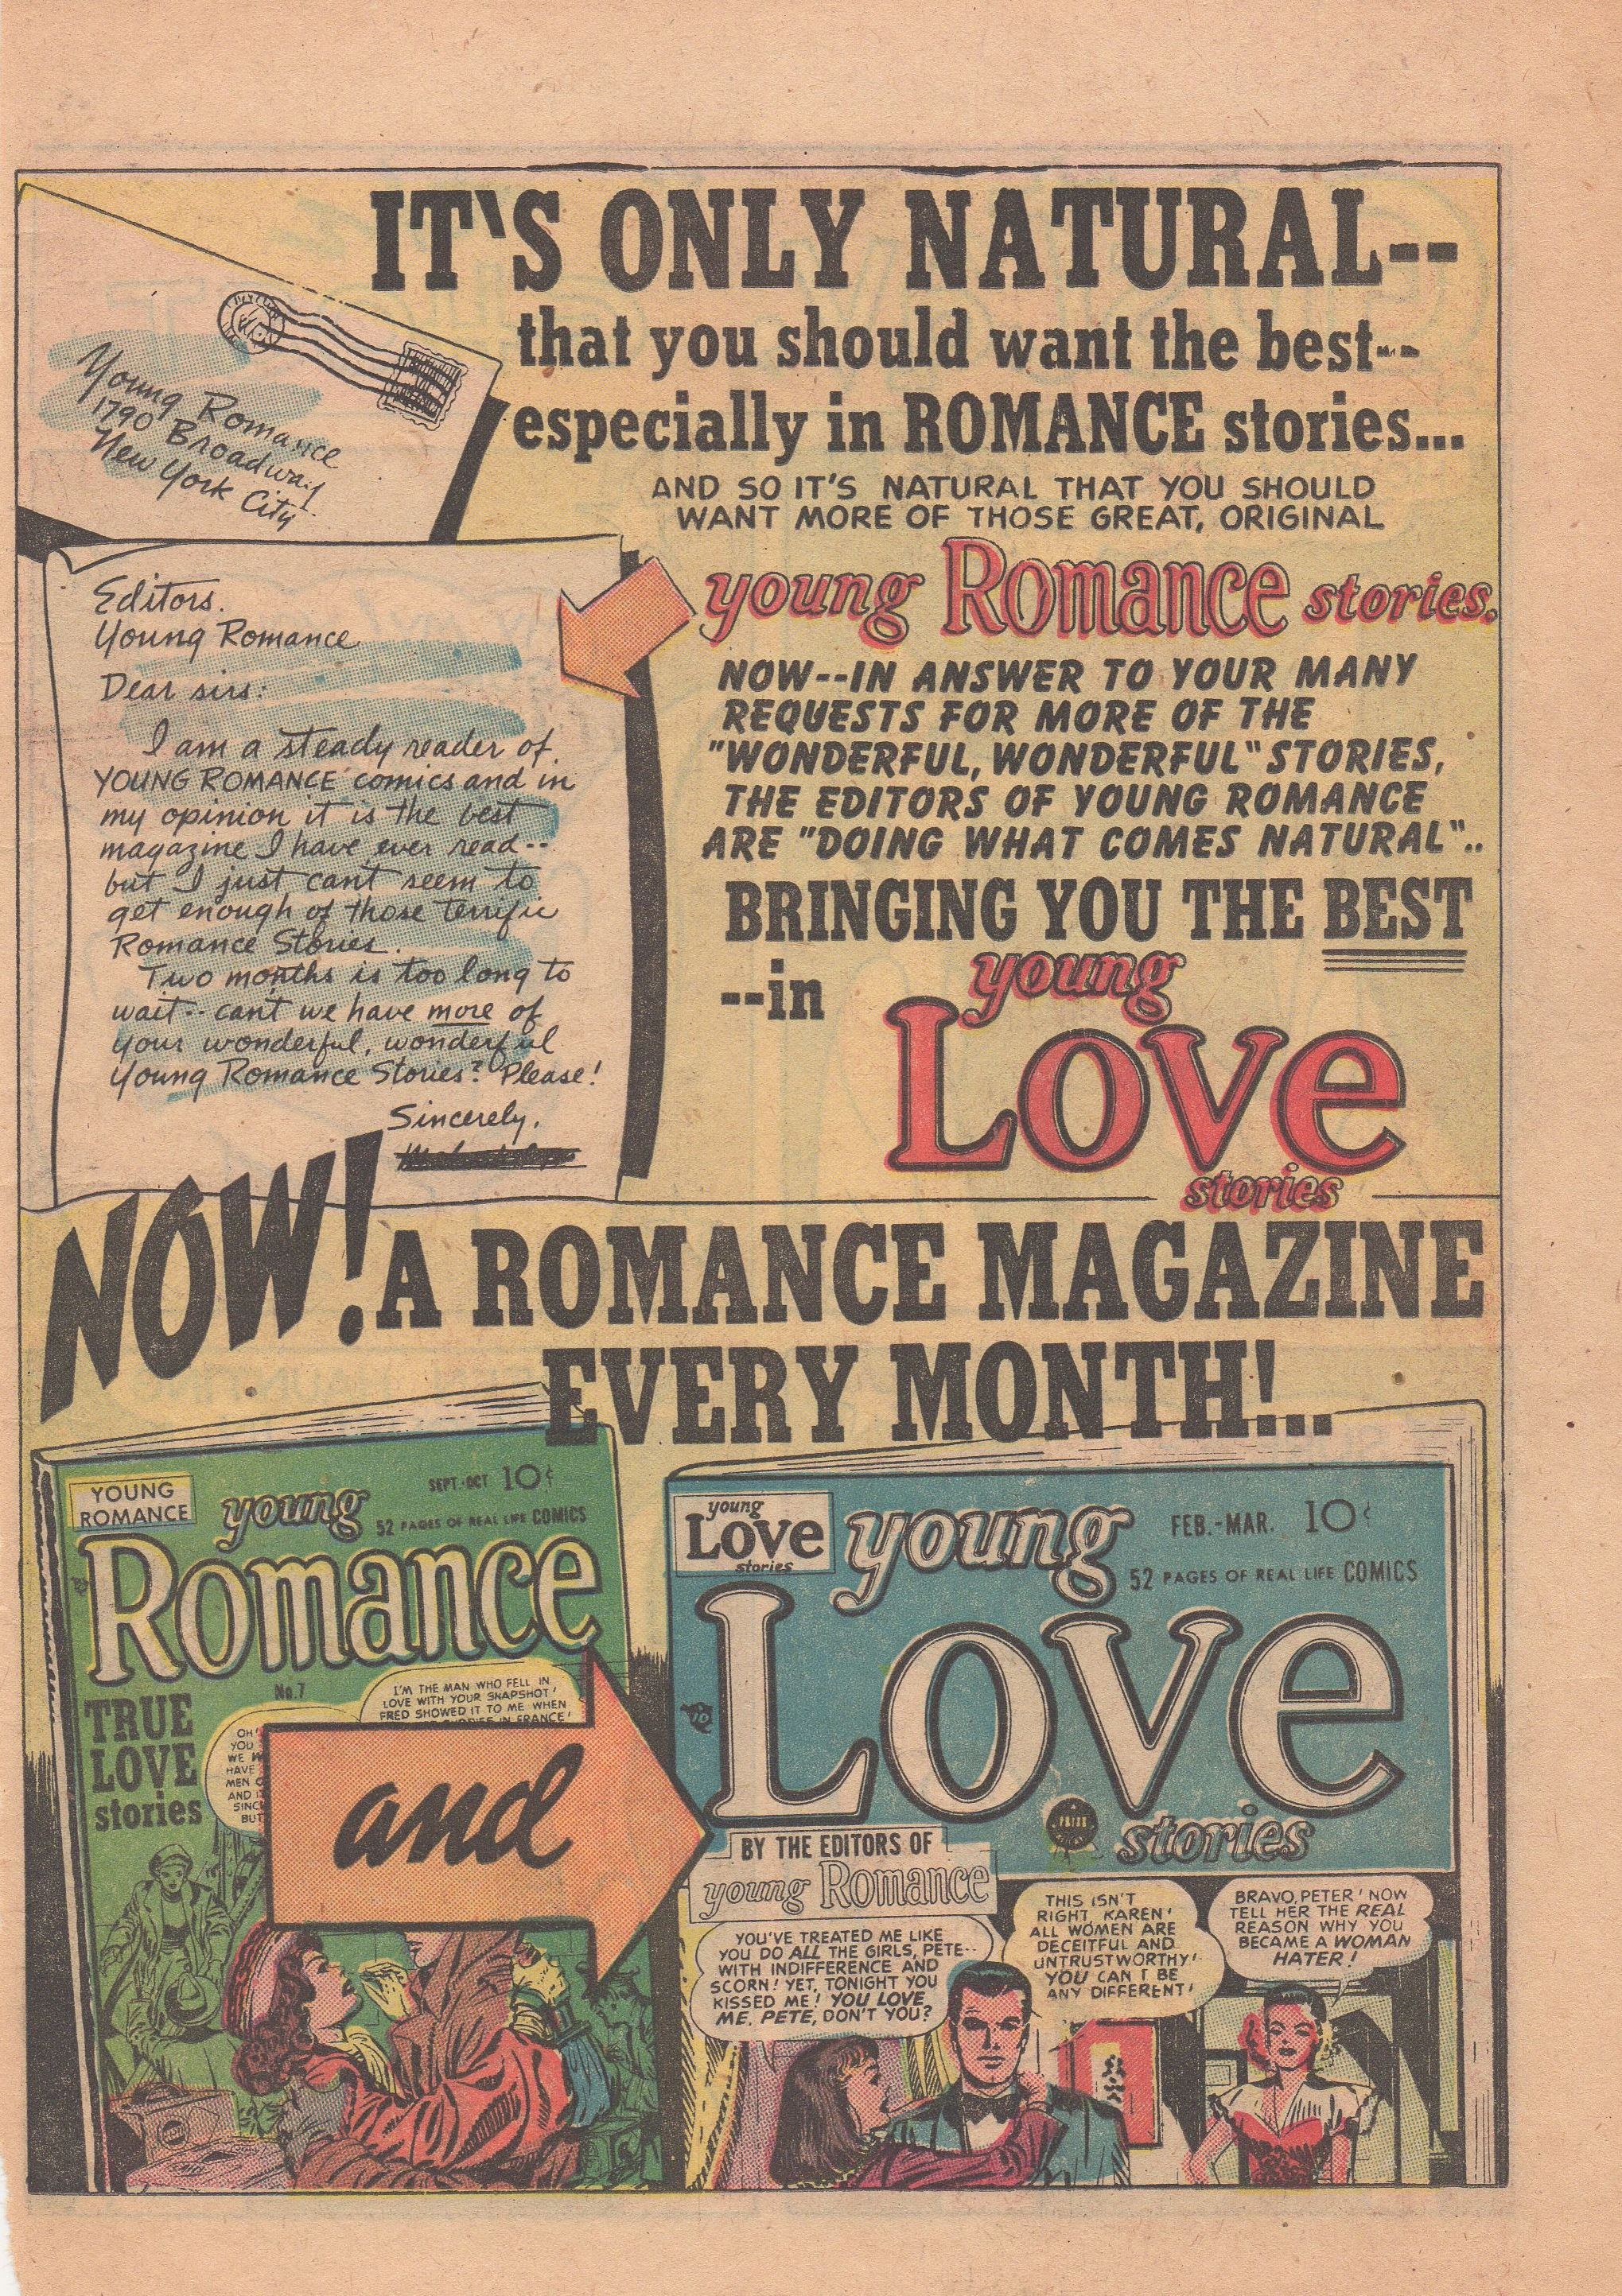 IT'S ONLY NATURAL--
that you should want the best--
especially in ROMANCE stories...
AND SO IT'S NATURAL THAT YOU SHOULD
WANT MORE OF THOSE GREAT, ORIGINAL
young Romance stories.
Young Romance
1790 Broadway
New York
City
Editors.
Young Romance
Dear sirs:
I am a steady reader of
YOUNG ROMANCE comics and in
my opinion it is the best
magazine I have ever read--
but I just can't seem to
get enough of those terrific
Romance Stories.
Two months is too long to
wait-- can't we have more of
your wonderful, wonderful
Young Romance Stories? Please!
Sincerely,
NOW--IN ANSWER TO YOUR MANY
REQUESTS FOR MORE OF THE
"WONDERFUL, WONDERFUL" STORIES,
THE EDITORS OF YOUNG ROMANCE
ARE "DOING WHAT COMES NATURAL"..
BRINGING YOU THE BEST
--in young
Love
stories
NOW! A ROMANCE MAGAZINE
EVERY MONTH!..
YOUNG
ROMANCE
young
SEPT.-OCT 10¢
52 PAGES OF REAL LIFE COMICS
Romance
No.7
TRUE
LOVE
stories
I'M THE MAN WHO FELL IN
LOVE WITH YOUR SNAPSHOT!
FRED SHOWED IT TO ME WHEN
IN FRANCE!
OH!
YOU
WE
HAVE
MEN
AND
SINC
BUT
and
young
Love
stories
young
FEB.-MAR. 10¢
52 PAGES OF REAL LIFE COMICS
Love
stories
A
PRIZE
BY THE EDITORS OF
young Romance
YOU'VE TREATED ME LIKE
YOU DO ALL THE GIRLS, PETE--
WITH INDIFFERENCE AND
SCORN! YET, TONIGHT YOU
KISSED ME! YOU LOVE
ME, PETE, DON'T YOU?
THIS ISN'T
RIGHT, KAREN!
ALL WOMEN ARE
DECEITFUL AND
UNTRUSTWORTHY!
YOU CAN'T BE
ANY DIFFERENT!
BRAVO, PETER! NOW
TELL HER THE REAL
REASON WHY YOU
BECAME A WOMAN
HATER!